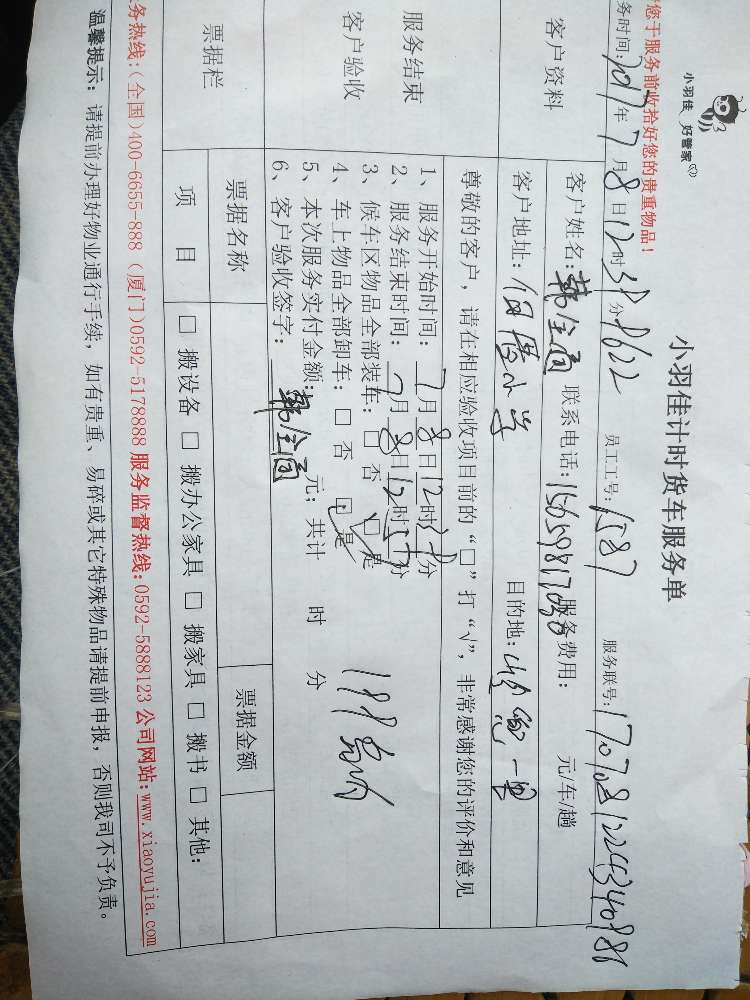 小羽佳 好管家
小羽佳计时货车服务单
您于服务前收拾好您的贵重物品!
务时间: 2017年7月8日12时38分 8622 员工工号: 1587 服务联号: 170708122434098
客户资料
客户姓名: 韩全 联系电话: 服务费用: 元/车/趟
客户地址: 小学 目的地: 一里
服务结束
客户验收
尊敬的客户，请在相应验收项目前的“□”打“√”，非常感谢您的评价和意见
1、服务开始时间: 7月8日12时38分
2、服务结束时间: 7月8日12时57分
3、候车区物品全部装车: □ 否 □ 是
4、车上物品全部卸车: □ 否 □ 是
5、本次服务实付金额: 元; 共计 时 分
6、客户验收签字: 韩全
188
票据栏
票据名称 票据金额
项 目 □ 搬设备 □ 搬办公家具 □ 搬家具 □ 搬书 □ 其他:
务热线:(全国)400-6655-888 (厦门)0592-5178888 服务监督热线:0592-5888123 公司网站:www.xiaoyujia.com
温馨提示: 请提前办理好物业通行手续，如有贵重、易碎或其它特殊物品请提前申报，否则我司不予负责。